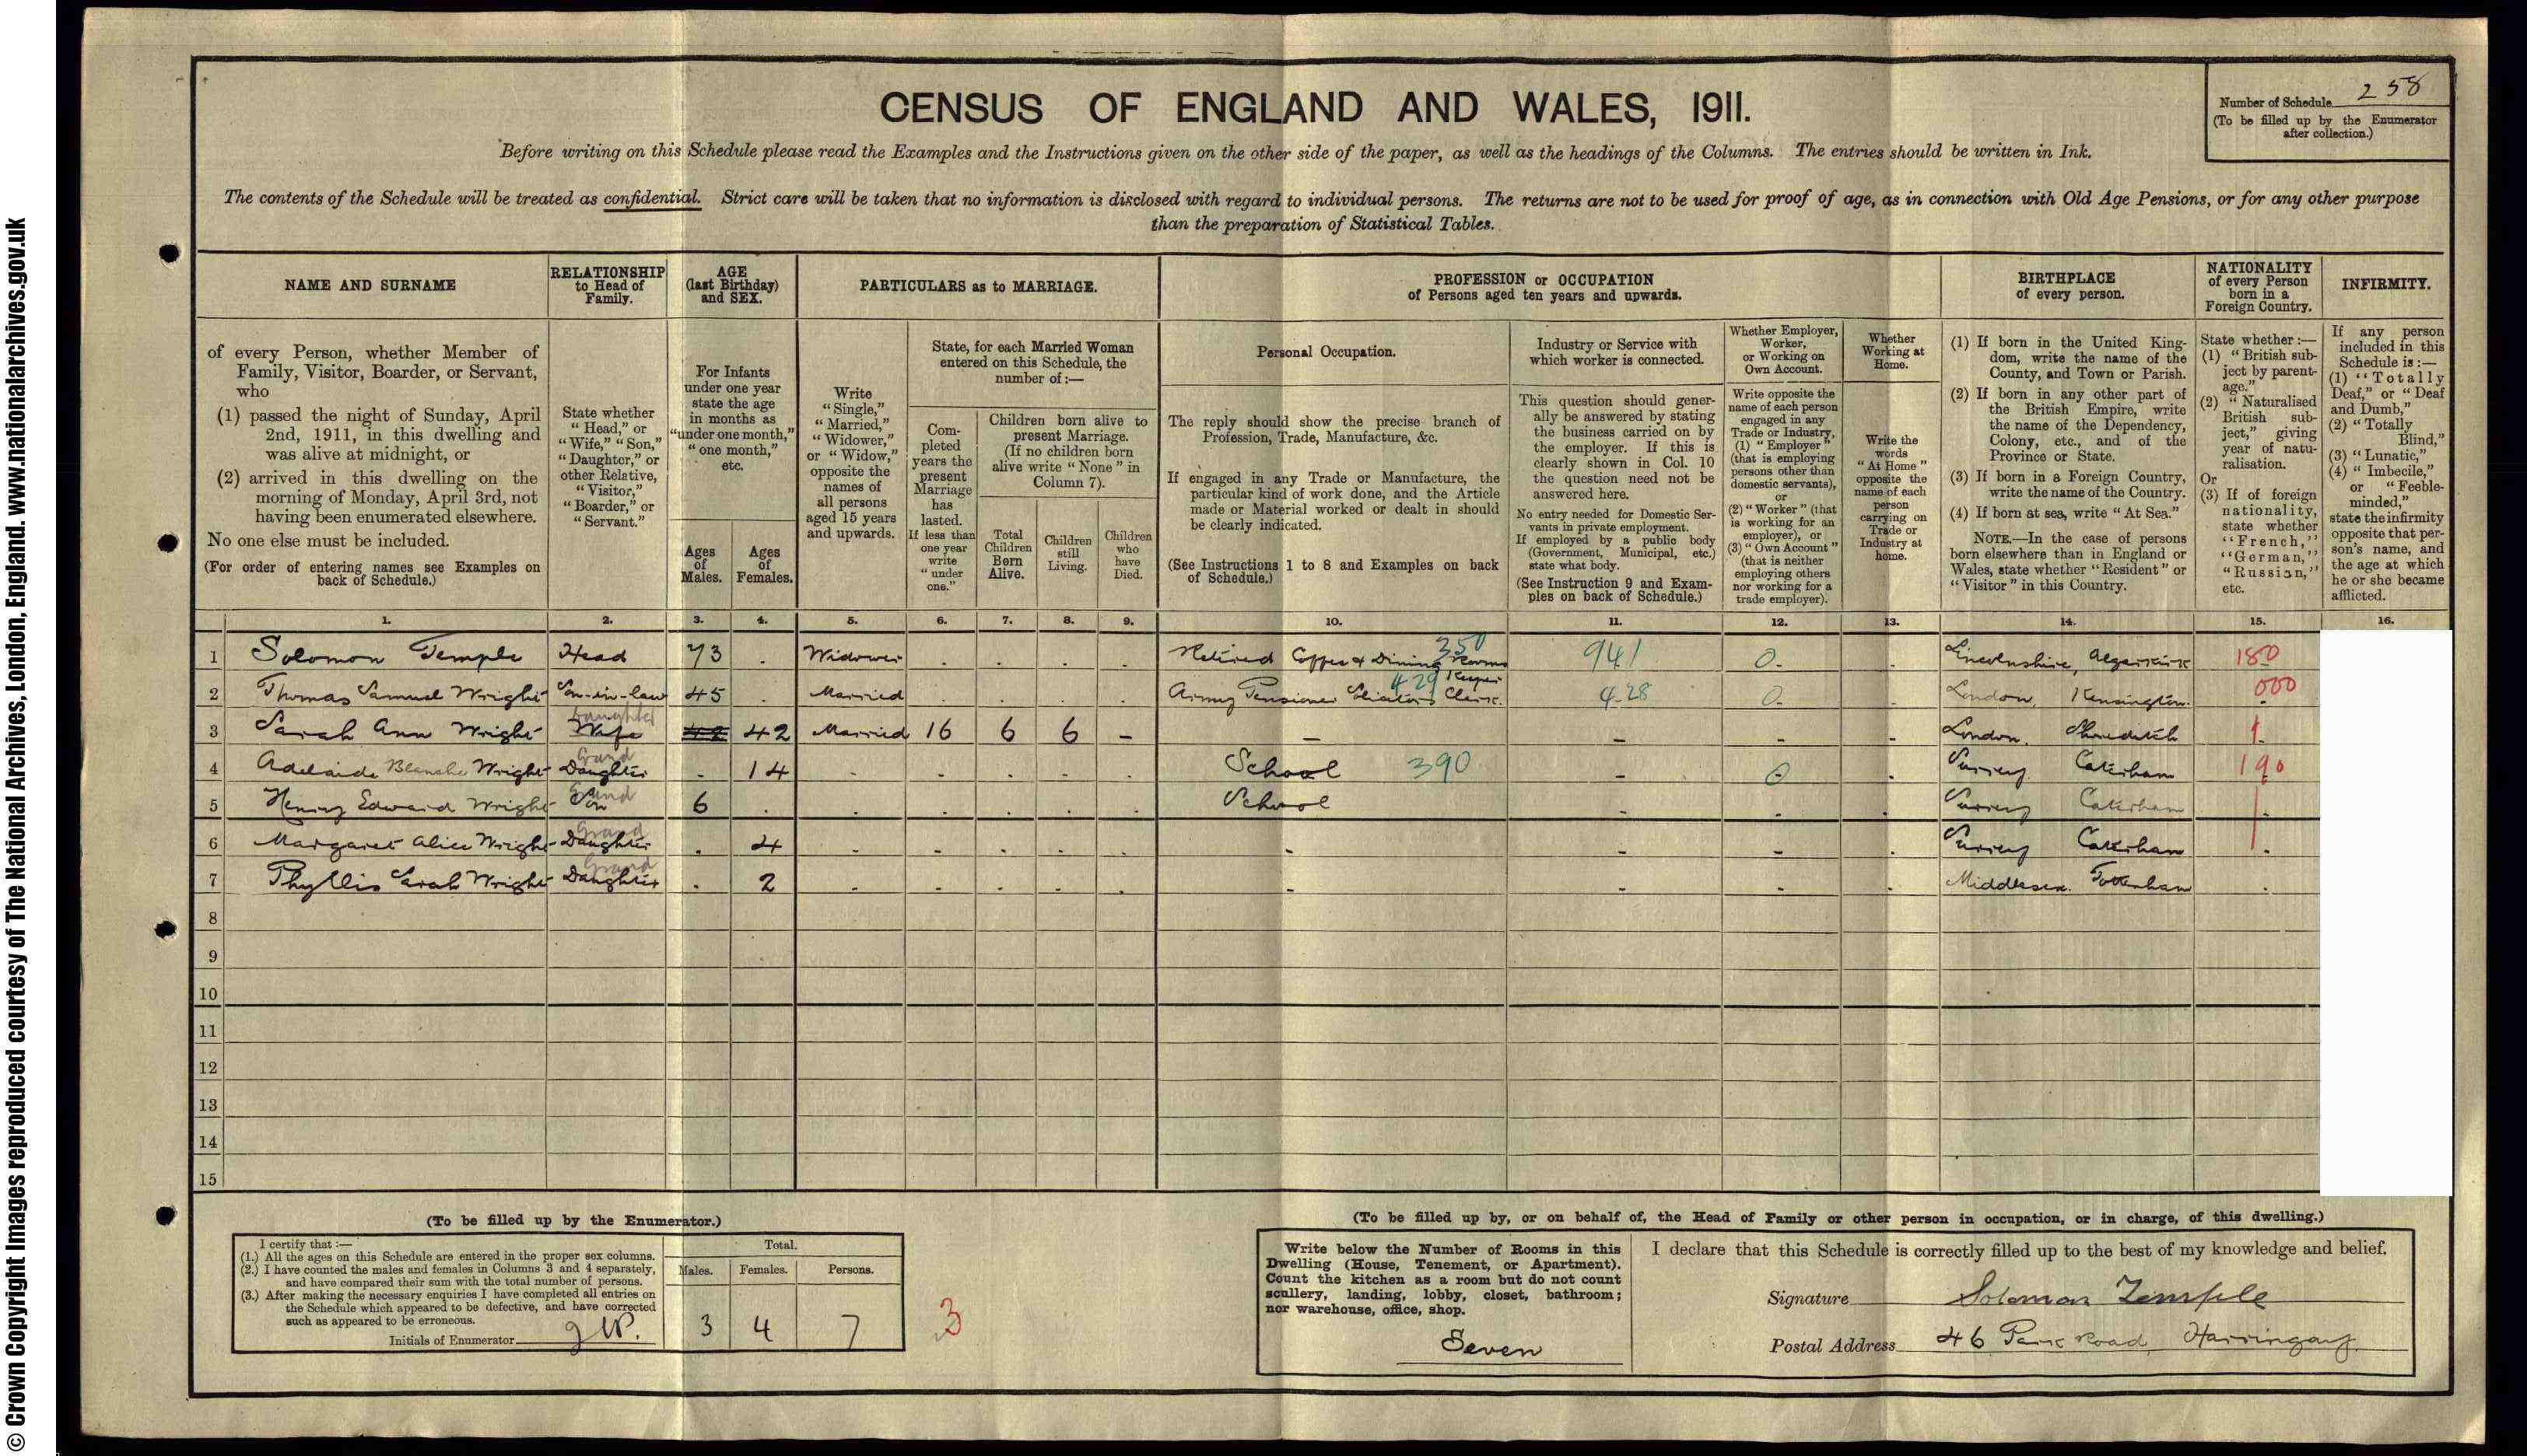 CENSUS OF ENGLAND AND WALES, 1911.
Number of Schedule 258
(To be filled up by the Enumerator
after collection.)
Before writing on this Schedule please read the Examples and the Instructions given on the other side of the paper, as well as the headings of the Columns. The entries should be written in Ink.
The contents of the Schedule will be treated as confidential. Strict care will be taken that no information is disclosed with regard to individual persons. The returns are not to be used for proof of age, as in connection with Old Age Pensions, or for any other purpose
than the preparation of Statistical Tables.
NAME AND SURNAME
of every Person, whether Member of
Family, Visitor, Boarder, or Servant,
who
(1) passed the night of Sunday, April
2nd, 1911, in this dwelling and
was alive at midnight, or
(2) arrived in this dwelling on the
morning of Monday, April 3rd, not
having been enumerated elsewhere.
No one else must be included.
(For order of entering names see Examples on
back of Schedule.)
RELATIONSHIP
to Head of
Family.
State whether
"Head," or
"Wife," "Son,"
"Daughter," or
other Relative,
"Visitor,"
"Boarder," or
"Servant."
AGE
(last Birthday)
and SEX.
For Infants
under one year
state the age
in months as
"under one month,"
"one month,"
etc.
Ages
of
Males.
Ages
of
Females.
PARTICULARS as to MARRIAGE.
Write
"Single,"
"Married,"
"Widower,"
or "Widow,"
opposite the
names of
all persons
aged 15 years
and upwards.
State, for each Married Woman
entered on this Schedule, the
number of:—
Com-
pleted
years the
present
Marriage
has
lasted.
If less than
one year
write
"under
one."
Children born alive to
present Marriage.
(If no children born
alive write "None" in
Column 7).
Total
Children
Born
Alive.
Children
still
Living.
Children
who
have
Died.
PROFESSION or OCCUPATION
of Persons aged ten years and upwards.
Personal Occupation.
The reply should show the precise branch of
Profession, Trade, Manufacture, &c.
If engaged in any Trade or Manufacture, the
particular kind of work done, and the Article
made or Material worked or dealt in should
be clearly indicated.
(See Instructions 1 to 8 and Examples on back
of Schedule.)
Industry or Service with
which worker is connected.
This question should gener-
ally be answered by stating
the business carried on by
the employer. If this is
clearly shown in Col. 10
the question need not be
answered here.
No entry needed for Domestic Ser-
vants in private employment.
If employed by a public body
(Government, Municipal, etc.)
state what body.
(See Instruction 9 and Exam-
ples on back of Schedule.)
Whether Employer,
Worker,
or Working on
Own Account.
Write opposite the
name of each person
engaged in any
Trade or Industry,
(1) "Employer"
(that is employing
persons other than
domestic servants),
or
(2) "Worker" (that
is working for an
employer), or
(3) "Own Account"
(that is neither
employing others
nor working for a
trade employer).
Whether
Working at
Home.
Write the
words
"At Home"
opposite the
name of each
person
carrying on
Trade or
Industry at
home.
BIRTHPLACE
of every person.
(1) If born in the United King-
dom, write the name of the
County, and Town or Parish.
(2) If born in any other part of
the British Empire, write
the name of the Dependency,
Colony, etc., and of the
Province or State.
(3) If born in a Foreign Country,
write the name of the Country.
(4) If born at sea, write "At Sea."
NOTE.—In the case of persons
born elsewhere than in England or
Wales, state whether "Resident" or
"Visitor" in this Country.
NATIONALITY
of every Person
born in a
Foreign Country.
State whether:—
(1) "British sub-
ject by parent-
age."
(2) "Naturalised
British sub-
ject," giving
year of natu-
ralisation.
Or
(3) If of foreign
nationality,
state whether
"French,"
"German,"
"Russian,"
etc.
INFIRMITY.
If any person
included in this
Schedule is:—
(1) "Totally
Deaf," or "Deaf
and Dumb,"
(2) "Totally
Blind,"
(3) "Lunatic,"
(4) "Imbecile,"
or "Feeble-
minded,"
state the infirmity
opposite that per-
son's name, and
the age at which
he or she became
afflicted.
1. 2. 3. 4. 5. 6. 7. 8. 9. 10. 11. 12. 13. 14. 15. 16.
1 Solomon Temple Head 73 Widower Retired Coffee & Dining Rooms Keeper 350 941 0 Lincolnshire, Algarkirk 180
2 Thomas Samuel Wright Son-in-law 45 Married Army Pensioner Solicitors Clerk. 429 428 0 London, Kensington. 000
3 Sarah Ann Wright Wife Daughter 42 42 Married 16 6 6 – London. Shoreditch 1
4 Adelaide Blanche Wright Grand Daughter 14 School 390 0 Surrey Caterham 190
5 Henry Edward Wright Grand Son 6 School Surrey Caterham
6 Margaret Alice Wright Grand Daughter 4 Surrey Caterham
7 Phyllis Sarah Wright Grand Daughter 2 Middlesex. Tottenham
8
9
10
11
12
13
14
15
(To be filled up by the Enumerator.)
I certify that:—
(1.) All the ages on this Schedule are entered in the proper sex columns.
(2.) I have counted the males and females in Columns 3 and 4 separately,
and have compared their sum with the total number of persons.
(3.) After making the necessary enquiries I have completed all entries on
the Schedule which appeared to be defective, and have corrected
such as appeared to be erroneous.
Initials of Enumerator
Total.
Males. Females. Persons.
3 4 7
3
(To be filled up by, or on behalf of, the Head of Family or other person in occupation, or in charge, of this dwelling.)
Write below the Number of Rooms in this
Dwelling (House, Tenement, or Apartment).
Count the kitchen as a room but do not count
scullery, landing, lobby, closet, bathroom;
nor warehouse, office, shop.
Seven
I declare that this Schedule is correctly filled up to the best of my knowledge and belief.
Signature Solomon Temple
Postal Address 46 Park Road Harringay.
© Crown Copyright Images reproduced courtesy of The National Archives, London, England. www.nationalarchives.gov.uk